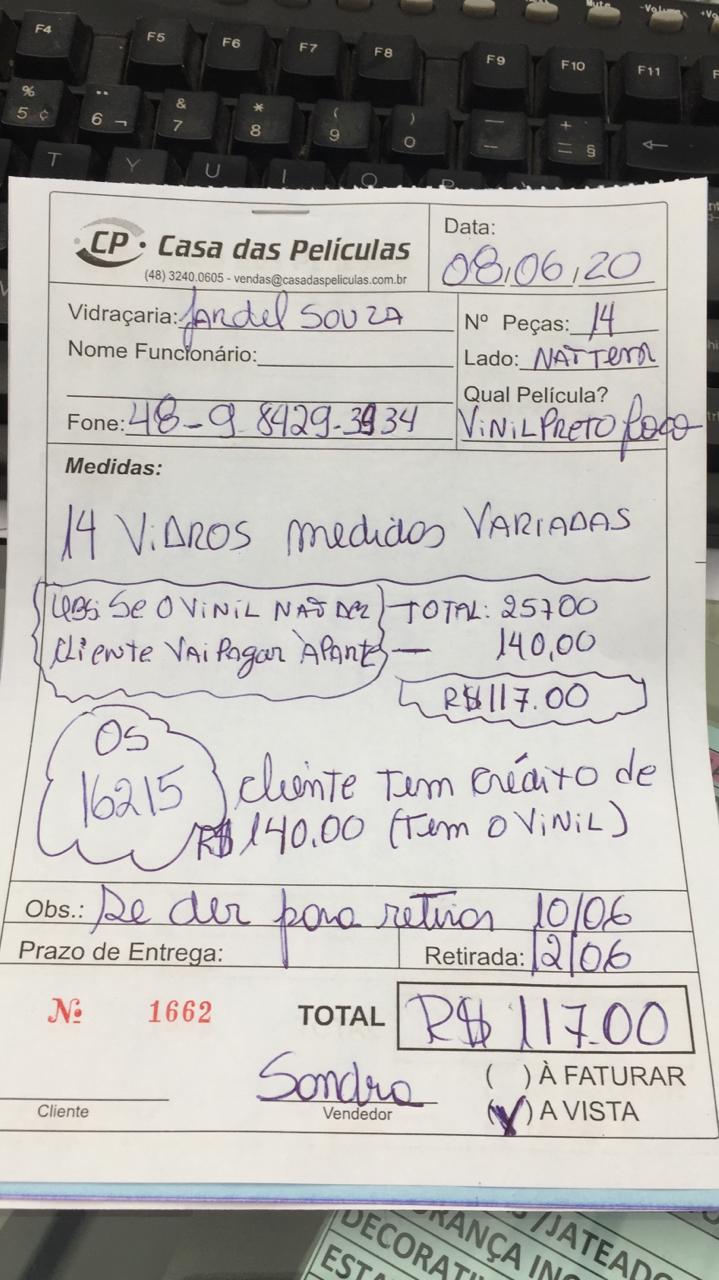 F4 F5 F6 F7 F8 F9 F10 F11
% 5 ¢ 6 ¬ & 7 * 8 ( 9 ) 0 — + = §
T Y U I
CP Casa das Películas
(48) 3240.0605 - vendas@casadaspeliculas.com.br
Data:
08/06/20
Vidraçaria: Jandel SOUZA
Nº Peças: 14
Nome Funcionário:
Lado: NAT Tem
Qual Película?
Fone: 48-9 8429-3934
ViNiL PRETO fosco
Medidas:
14 ViDROS medidas VARIADAS
OBS: Se O ViNiL NAT DER
TOTAL: 257.00
Cliente VAi Pagar APARTE
— 140,00
R$ 117.00
OS
16215
Cliente Tem Crédito de
R$ 140.00 (Tem O ViNiL)
Obs.: Se der para retirar 10/06
Prazo de Entrega:
Retirada: 12/06
Nº 1662
TOTAL R$ 117.00
Sandra
( ) À FATURAR
Cliente
Vendedor
(V) A VISTA
RANÇA IN
/JATEADO
DECORATI
ESTA